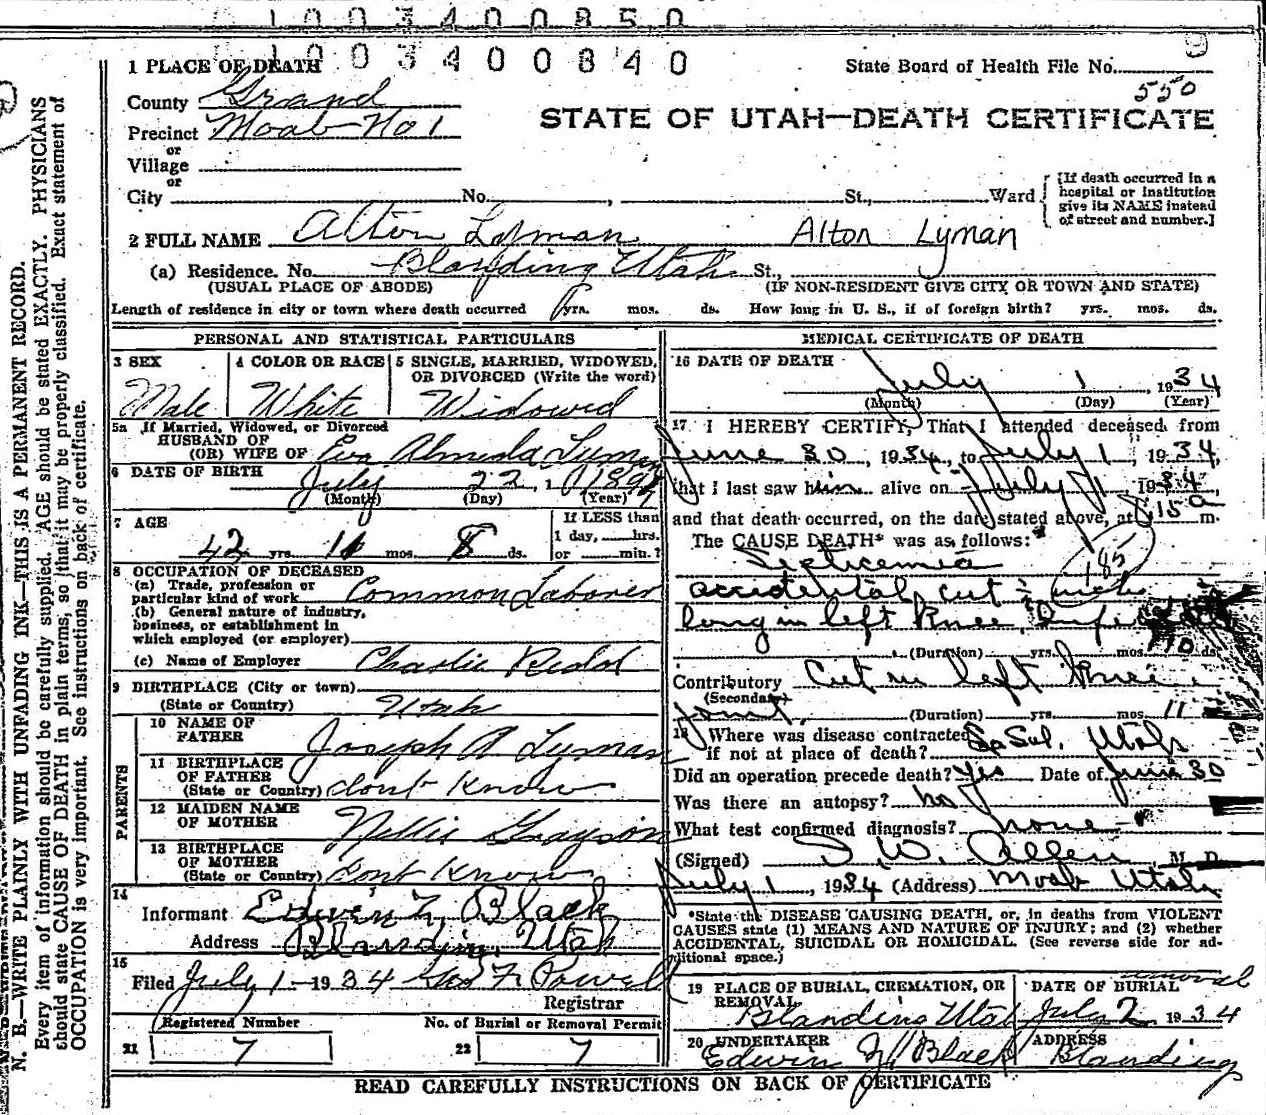 1003400850
1003400840
1 PLACE OF DEATH
State Board of Health File No.
550
County Grand
STATE OF UTAH—DEATH CERTIFICATE
Precinct Moab No 1
or
Village
or
City No. , St., Ward
[If death occurred in a hospital or institution give its NAME instead of street and number.]
2 FULL NAME Alton Lyman Alton Lyman
(a) Residence. No. Blanding Utah St.,
(USUAL PLACE OF ABODE) (IF NON-RESIDENT GIVE CITY OR TOWN AND STATE)
Length of residence in city or town where death occurred yrs. mos. ds. How long in U. S., if of foreign birth? yrs. mos. ds.
PERSONAL AND STATISTICAL PARTICULARS
3 SEX Male
4 COLOR OR RACE White
5 SINGLE, MARRIED, WIDOWED, OR DIVORCED (Write the word) Widowed
5a If Married, Widowed, or Divorced
HUSBAND OF
(OR) WIFE OF Eva Almeda Lyman
6 DATE OF BIRTH July 22, 1891
(Month) (Day) (Year)
7 AGE 42 yrs. 11 mos. 8 ds.
If LESS than 1 day, hrs. or min.?
8 OCCUPATION OF DECEASED
(a) Trade, profession or particular kind of work Common Laborer
(b) General nature of industry, business, or establishment in which employed (or employer)
(c) Name of Employer Charlie Redd
9 BIRTHPLACE (City or town)
(State or Country) Utah
PARENTS
10 NAME OF FATHER Joseph A Lyman
11 BIRTHPLACE OF FATHER (State or Country) dont Know
12 MAIDEN NAME OF MOTHER Nellie Grayson
13 BIRTHPLACE OF MOTHER (State or Country) dont Know
14 Informant Edwin Z. Black
Address Blanding, Utah
15 Filed July 1 - 1934 Geo F. Powell
Registrar
Registered Number No. of Burial or Removal Permit
21 7 22 7
MEDICAL CERTIFICATE OF DEATH
16 DATE OF DEATH
July 1, 1934
(Month) (Day) (Year)
17 I HEREBY CERTIFY, That I attended deceased from
June 30, 1934, to July 1, 1934,
that I last saw him alive on July 1, 1934
and that death occurred, on the date stated above, at 15 a m.
The CAUSE DEATH* was as follows:
Septicemia
185
accidental cut inch
long in left Knee,
(Duration) yrs. mos. 10 ds.
Contributory Cut in left Knee
(Secondary)
joint, (Duration) yrs. mos. 11
18 Where was disease contracted
if not at place of death? Utah
Did an operation precede death? Yes Date of June 30
Was there an autopsy? no
What test confirmed diagnosis? none
(Signed) I. W. Allen, M. D.
July 1, 1934 (Address) Moab Utah
*State the DISEASE CAUSING DEATH, or, in deaths from VIOLENT
CAUSES state (1) MEANS AND NATURE OF INJURY; and (2) whether
ACCIDENTAL, SUICIDAL OR HOMICIDAL. (See reverse side for ad-
ditional space.)
19 PLACE OF BURIAL, CREMATION, OR REMOVAL Blanding Utah
DATE OF BURIAL removal July 2 1934
20 UNDERTAKER Edwin Z Black
ADDRESS Blanding
READ CAREFULLY INSTRUCTIONS ON BACK OF CERTIFICATE
N. B.—WRITE PLAINLY WITH UNFADING INK—THIS IS A PERMANENT RECORD.
Every item of information should be carefully supplied. AGE should be stated EXACTLY. PHYSICIANS
should state CAUSE OF DEATH in plain terms, so that it may be properly classified. Exact statement of
OCCUPATION is very important. See instructions on back of certificate.